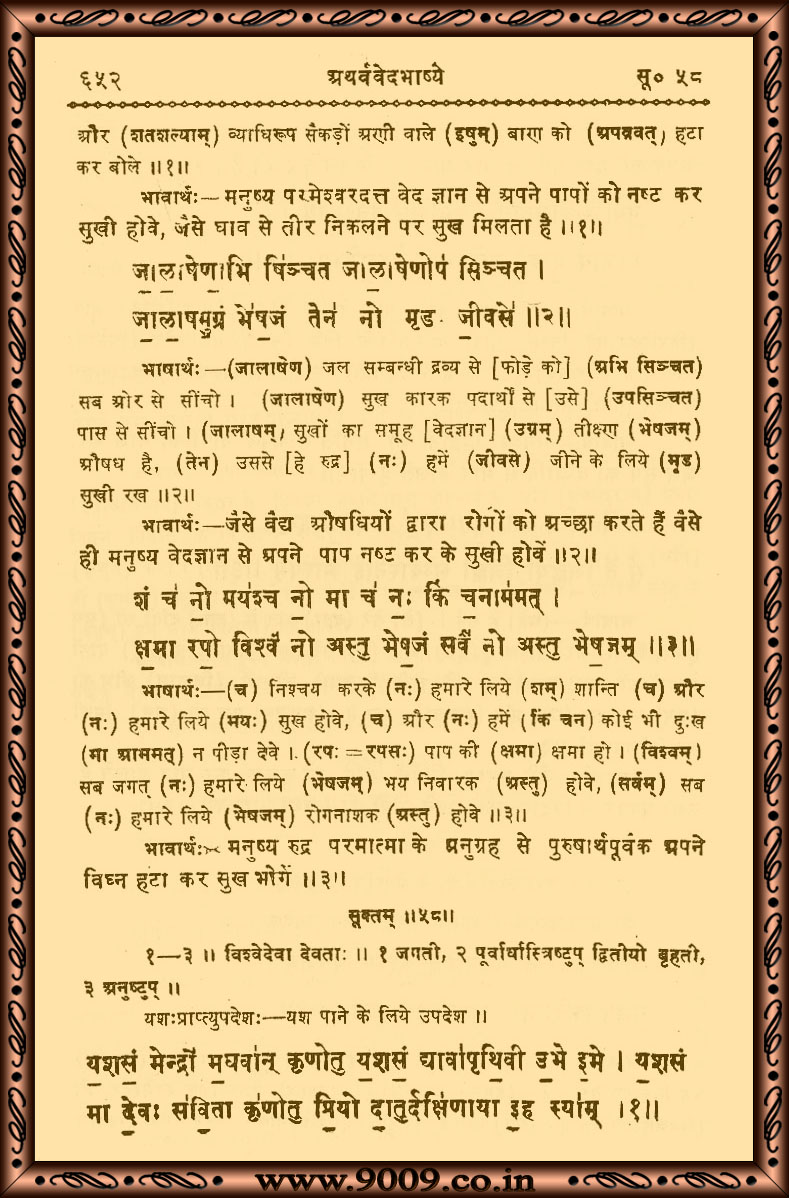 ६५२ अथर्ववेदभाष्ये सू० ५८
और (शतशल्याम्) व्याधिरूप सैकड़ों अणी वाले (इषुम्) बाण को (अपव्रवत्) हटा
कर बोले ॥१॥
भावार्थः—मनुष्य परमेश्वरदत्त वेद ज्ञान से अपने पापों को नष्ट कर
सुखी होवे, जैसे घाव से तीर निकलने पर सुख मिलता है ॥१॥
जा॒ला॒षेणा॒भि षि॑ञ्चत जाला॒षेणोप॑ सिञ्चत ।
जा॒ला॒षमु॒ग्रं भे॑ष॒जं तेन॑ नो मृड जी॒वसे॑ ॥२॥
भाषार्थः—(जालाषेण) जल सम्बन्धी द्रव्य से [फोड़े को] (अभि सिञ्चत)
सब ओर से सींचो । (जालाषेण) सुख कारक पदार्थों से [उसे] (उपसिञ्चत)
पास से सींचो । (जालाषम्) सुखों का समूह [वेदज्ञान] (उग्रम्) तीक्ष्ण (भेषजम्)
औषध है, (तेन) उससे [हे रुद्र] (नः) हमें (जीवसे) जीने के लिये (मृड)
सुखी रख ॥२॥
भावार्थः—जैसे वैद्य औषधियों द्वारा रोगों को अच्छा करते हैं वैसे
ही मनुष्य वेदज्ञान से अपने पाप नष्ट कर के सुखी होवें ॥२॥
शं च॑ नो॒ मय॑श्च नो॒ मा च॑ नः॒ किं च॒नाम॑मत् ।
क्ष॒मा रपो॒ विश्वं॑ नो अस्तु भेष॒जं सर्वं॑ नो अस्तु भेष॒जम् ॥३॥
भाषार्थः—(च) निश्चय करके (नः) हमारे लिये (शम्) शान्ति (च) और
(नः) हमारे लिये (मयः) सुख होवे, (च) और (नः) हमें (किं चन) कोई भी दुःख
(मा आममत्) न पीड़ा देवे । (रपः =रपसः) पाप की (क्षमा) क्षमा हो । (विश्वम्)
सब जगत् (नः) हमारे लिये (भेषजम्) भय निवारक (अस्तु) होवे, (सर्वम्) सब
(नः) हमारे लिये (भेषजम्) रोगनाशक (अस्तु) होवे ॥३॥
भावार्थः—मनुष्य रुद्र परमात्मा के अनुग्रह से पुरुषार्थपूर्वक अपने
विघ्न हटा कर सुख भोगें ॥३॥
सूक्तम् ॥५८॥
१—३ ॥ विश्वेदेवा देवताः ॥ १ जगती, २ पूर्वार्धस्त्रिष्टुप् द्वितीयो बृहती,
३ अनुष्टुप् ॥
यशःप्राप्त्युपदेशः—यश पाने के लिये उपदेश ॥
य॒शसं॒ मेन्द्रो॑ म॒घवा॑न् कृणोतु य॒शसं॒ द्यावा॑पृथि॒वी उ॒भे इ॒मे । य॒शसं
मा दे॒वः स॑वि॒ता कृ॑णोतु प्रि॒यो दा॒तुर्दक्षि॑णाया इ॒ह स्या॑म् ।१॥
www.9009.co.in